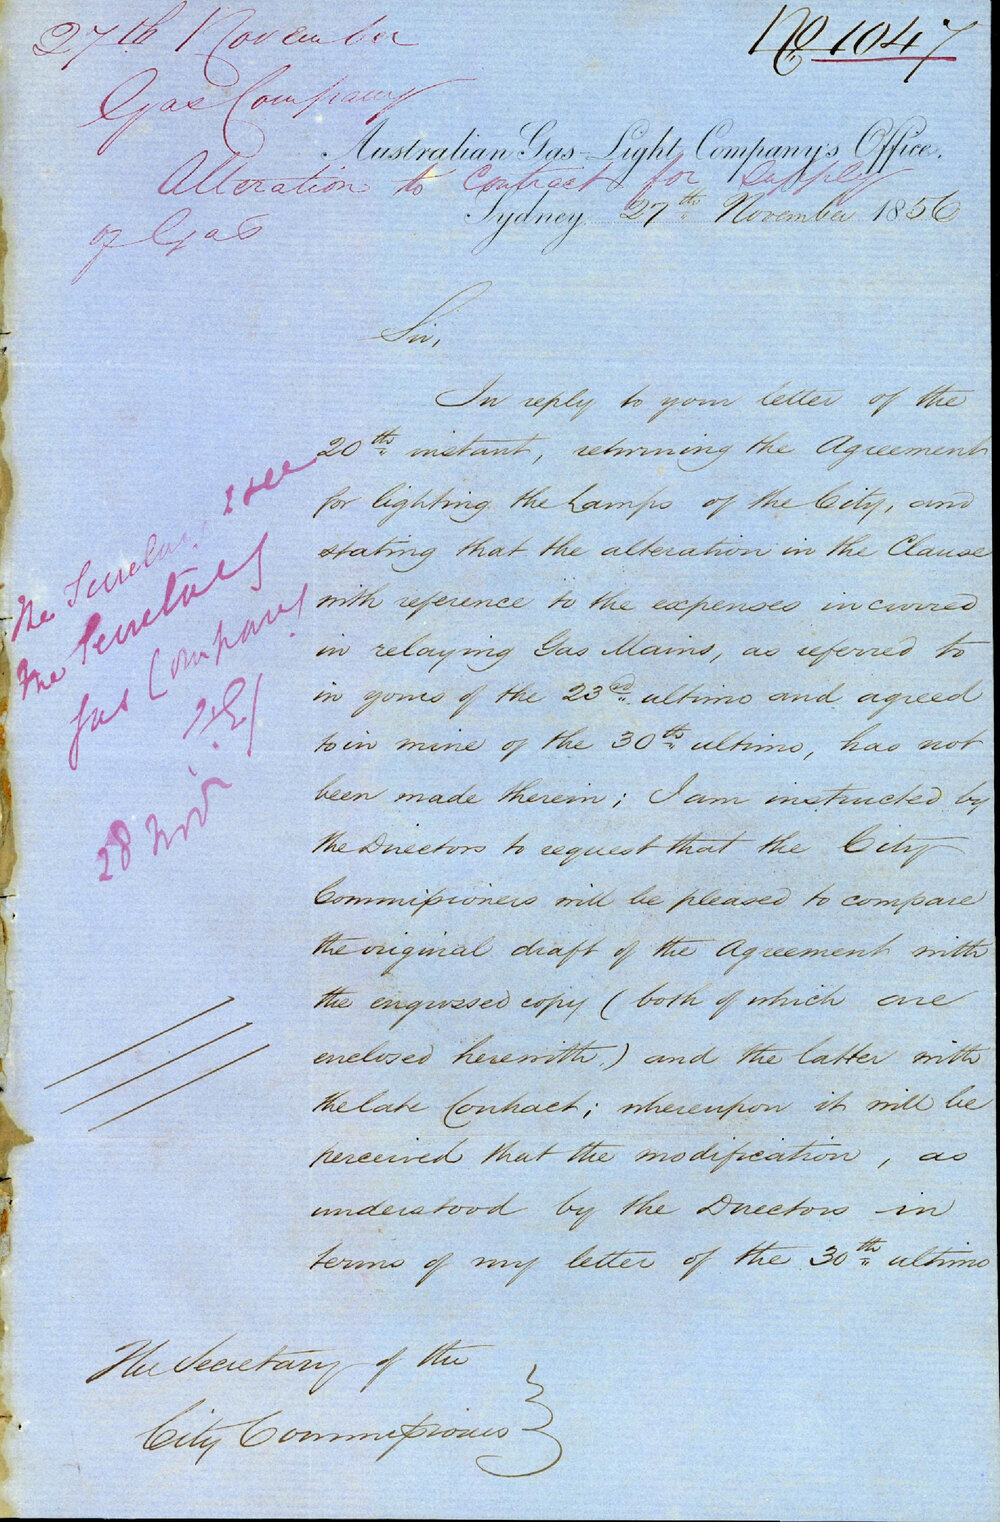 27th November
No 1047
Gas Company
Australian Gas-Light Company's Office.
Alteration to Contract for Supply
of Gas
Sydney 27th November 1856
Sir,
In reply to your letter of the
20th instant, returning the Agreement
for lighting the Lamps of the City, and
stating that the alteration in the Clause
with reference to the expenses incurred
in relaying Gas Mains, as referred to
in yours of the 23rd ultimo and agreed
to in mine of the 30th ultimo, has not
been made therein; I am instructed by
the Directors to request that the City
Commissioners will be pleased to compare
the original draft of the Agreement with
the engrossed copy (both of which are
enclosed herewith) and the latter with
the late Contract; whereupon it will be
perceived that the modification, as
understood by the Directors in
terms of my letter of the 30th ultimo
The Secretary see
the Secretary
Gas Company
28 Novr
The Secretary of the
City Commissioners